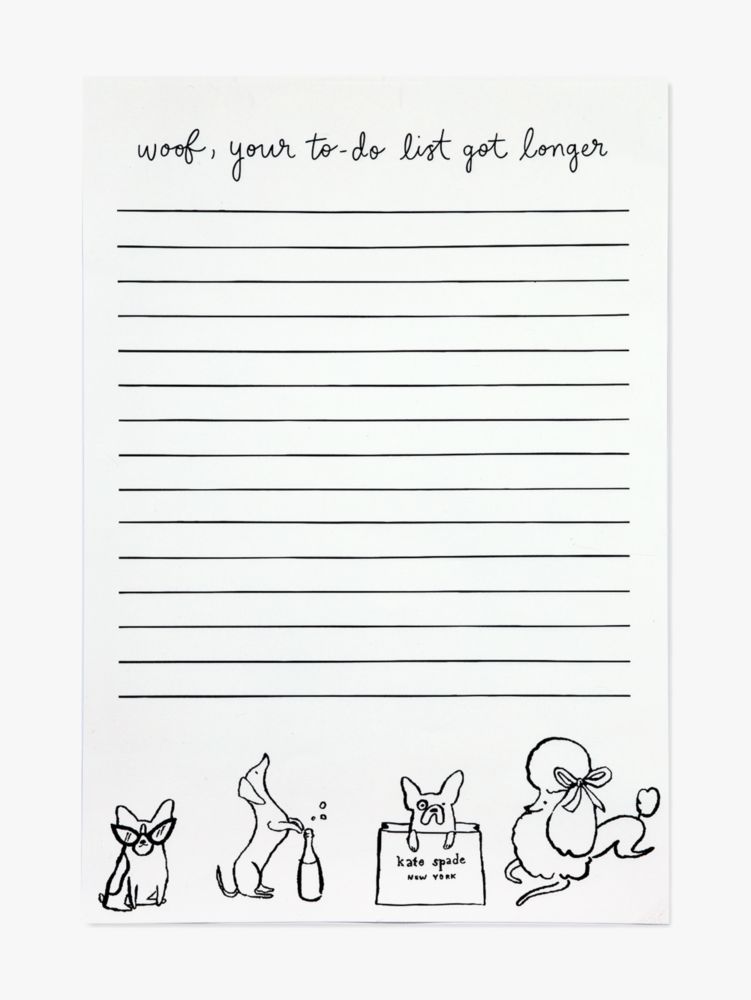 woof, your to-do list got longer
kate spade
NEW YORK